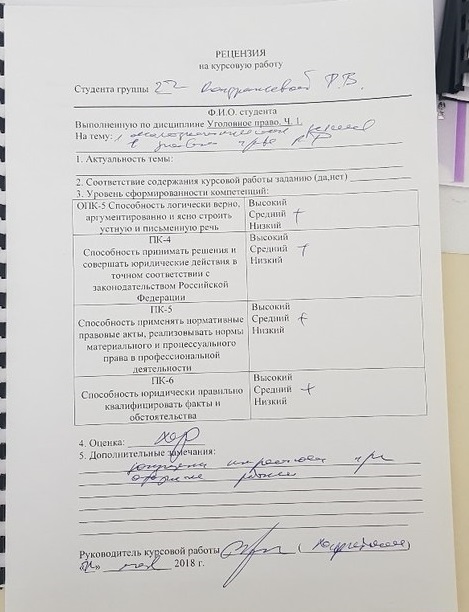 РЕЦЕНЗИЯ
на курсовую работу
Студента группы 22 Ф.В.
Ф.И.О. студента
Выполненную по дисциплине Уголовное право. Ч. 1.
На тему:
в РФ
1. Актуальность темы:
2. Соответствие содержания курсовой работы заданию (да,нет)
3. Уровень сформированности компетенций:
ОПК-5 Способность логически верно, Высокий
аргументированно и ясно строить Средний +
устную и письменную речь Низкий
ПК-4 Высокий
Способность принимать решения и Средний +
совершать юридические действия в Низкий
точном соответствии с
законодательством Российской
Федерации
ПК-5 Высокий
Способность применять нормативные Средний +
правовые акты, реализовывать нормы Низкий
материального и процессуального
права в профессиональной
деятельности
ПК-6 Высокий
Способность юридически правильно Средний +
квалифицировать факты и Низкий
обстоятельства
4. Оценка: хор
5. Дополнительные замечания:
при
Руководитель курсовой работы
2018 г.